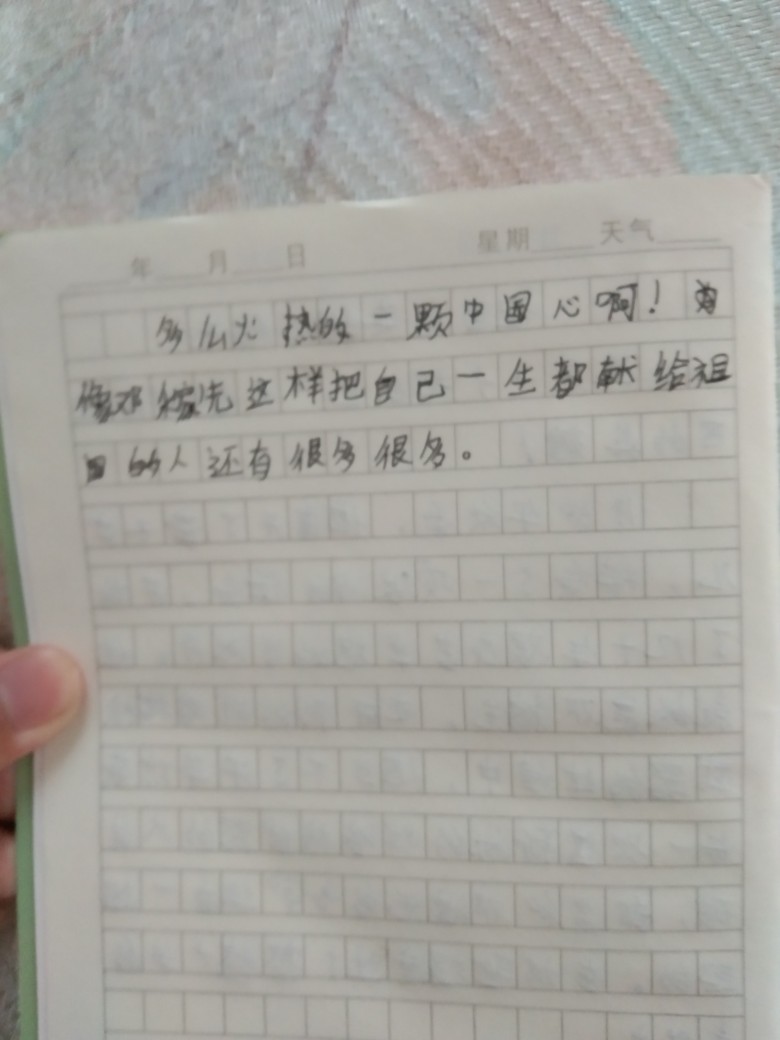 年 月 日 星期 天气
多么火热的一颗中国心啊！
像邓稼先这样把自己一生都献给祖
国的人还有很多很多。